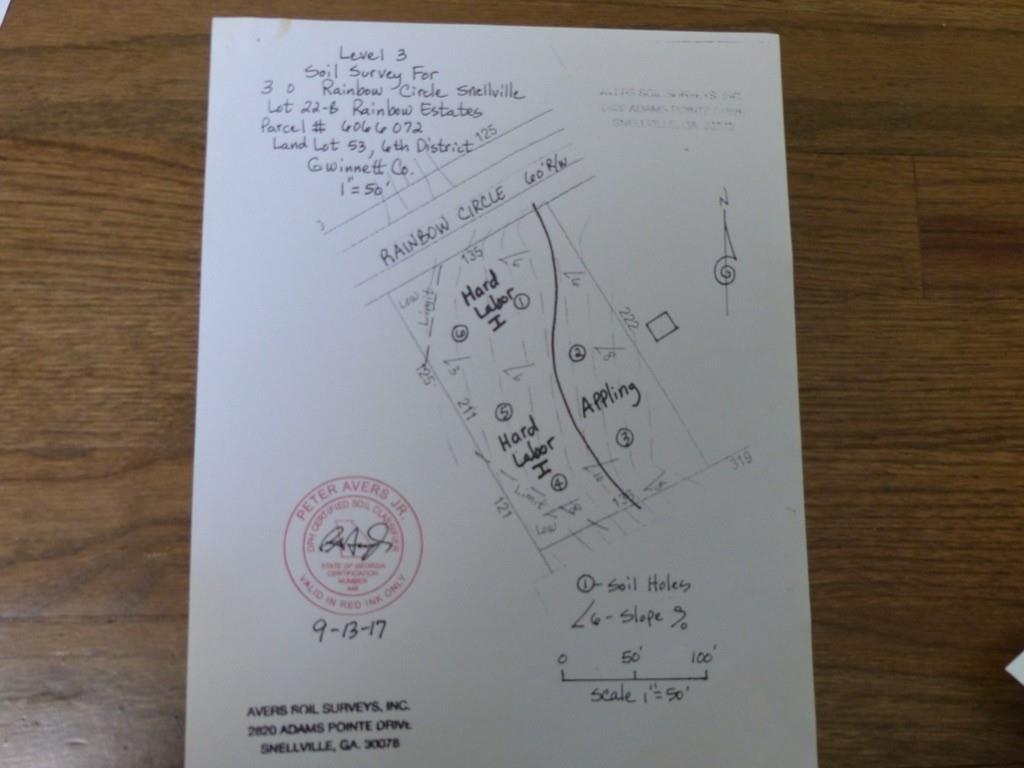 Level 3
Soil Survey For
3 0 Rainbow Circle Snellville
Lot 22-B Rainbow Estates
Parcel # 6066072
Land Lot 53, 6th District
Gwinnett Co.
1"=50'
AVERS SOIL SURVEYS, INC.
2820 ADAMS POINTE DRIVE
SNELLVILLE, GA. 30078
125
RAINBOW CIRCLE 60' R/W
N
135
6
Low
Limit
Hard
Labor
I
1
6
6
222
2
5
3
6
125
211
Appling
5
Hard
Labor
I
3
4
319
121
Limit
Low
8
PETER AVERS JR.
DPH CERTIFIED SOIL CLASSIFIER
STATE OF GEORGIA
CERTIFICATION
NUMBER
VALID IN RED INK ONLY
9-13-17
1 - Soil Holes
6 - Slope %
0 50' 100'
Scale 1"=50'
AVERS SOIL SURVEYS, INC.
2820 ADAMS POINTE DRIVE
SNELLVILLE, GA. 30078